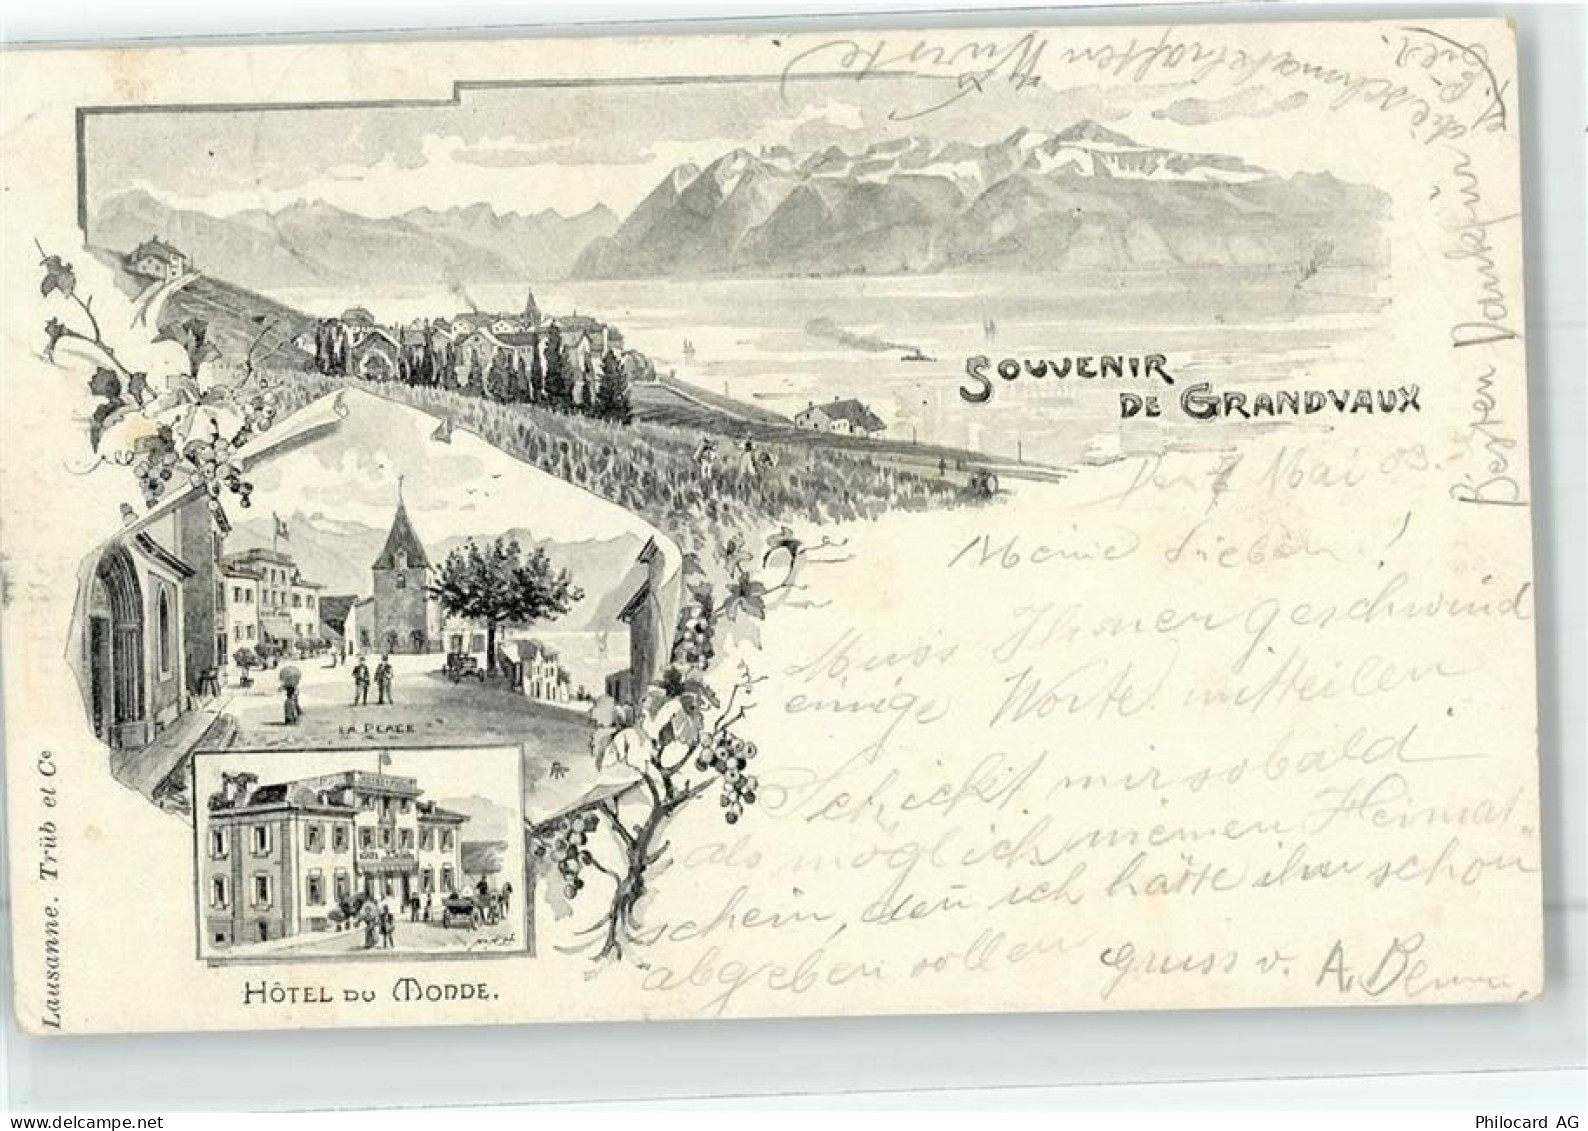 SOUVENIR
DE GRANDVAUX
Den 7 Mai 03.
Meine Lieben!
Muss Ihnen geschwind
einige Worte mitteilen
Schickt mir sobald
als möglich meinen Heimat-
schein, den ich hätte ihn schon
abgeben sollen Gruss v. A.
Besten Dank für
die schmackhaften Würste
LA PLACE
HÔTEL DU MONDE.
Lausanne. Trüb et Cᵉ
Philocard AG